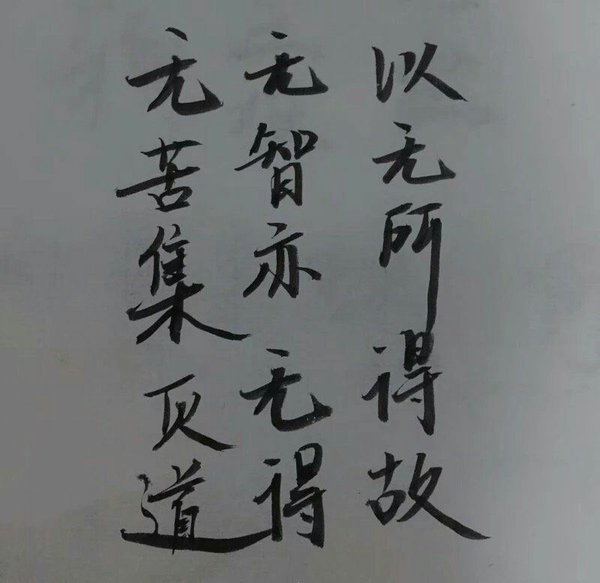 无苦集灭道
无智亦无得
以无所得故